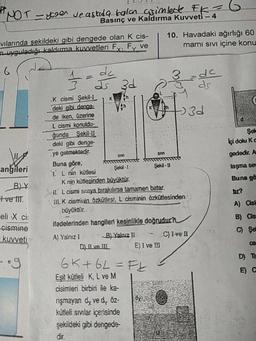 NOT = yüzen ve askıda kalan cisimlerde FK = G
Basınç ve Kaldırma Kuvveti – 4
vılarında şekildeki gibi dengede olan K cis-
uyguladığı kaldırma kuvvetleri Fx, Fy ve
10. Havadaki ağırlığı 60
mamı sıvı içine konu
1/3 = dc/ds
3d
3/3 = dc/ds
3d
K cismi Şekil-I
deki gibi denge-
de iken, üzerine
L cismi konuldu-
ğunda Şekil-II
deki gibi denge-
ye gelmektedir.
Buna göre,
sıvı
sıvı
Şekil - I
Şekil - II
I. L nin kütlesi
K nin kütlesinden büyüktür.
II. L cismi sıvıya bırakılırsa tamamen batar.
III. K cisminin özkütlesi, L cisminin özkütlesinden
büyüktür.
ifadelerinden hangileri kesinlikle doğrudur?
A) Yalnız I
B) Yalnız II
C) I ve II
D) II ve III
E) I ve III
6K + 6L = FK
Eşit kütleli K, L ve M
cisimleri birbiri ile ka-
rışmayan d₂ ve d₁ öz-
kütleli sıvılar içerisinde
şekildeki gibi dengede-
dir.
angileri
B) Y
I ve III
eli X ci
cismine
kuvveti
Şek
İçi dolu K c
gededir. A
taşma se
Buna gö
tır?
A) Cis
B) Cis
C) Şe
D) T
E) C